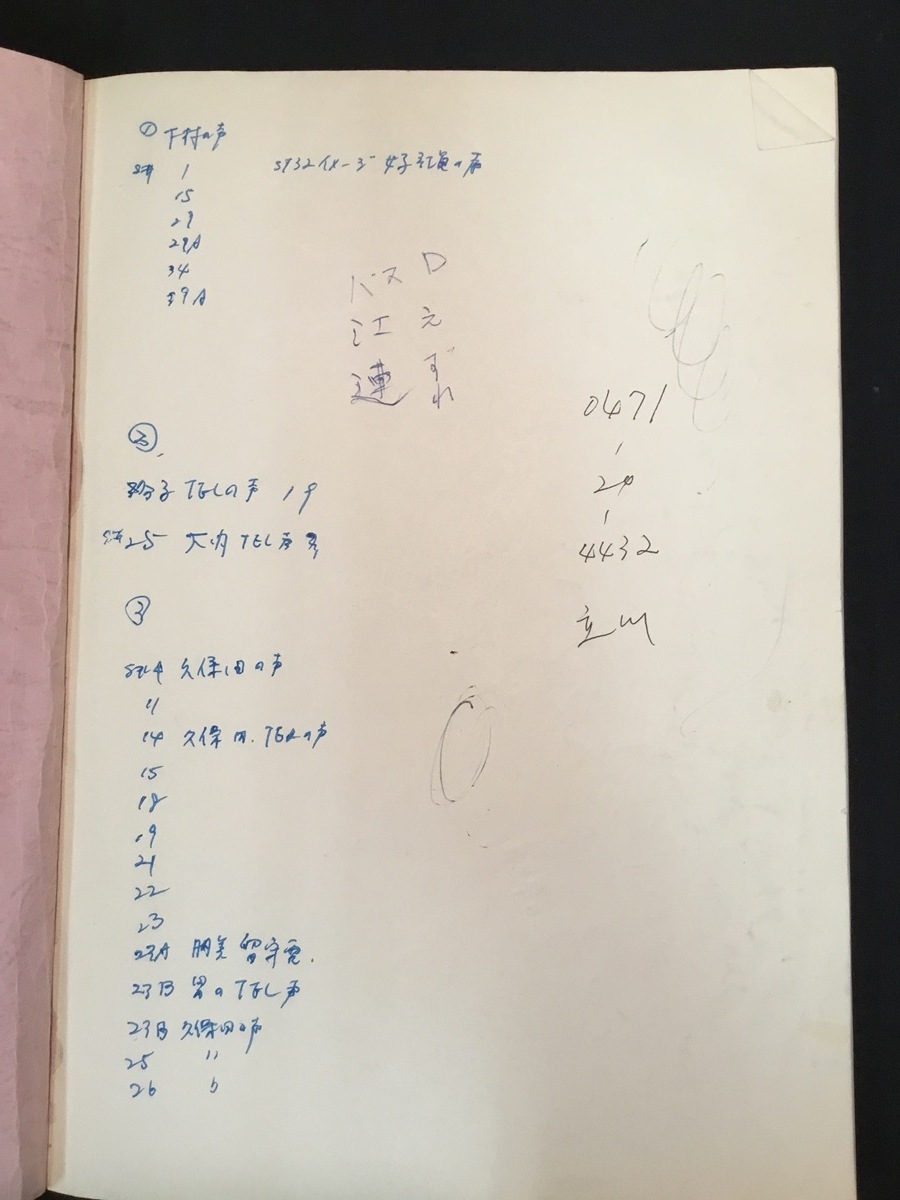 ① 下村の声
S# 1
15
29
29A
34
39A
S#32イメージ 女子社員の声
バス D
江 え
連 ずれ
0471
20
4432
立川
②
子 TELの声 19
S#25 大内 TEL声
③
S#4 久保田の声
11
14 久保田 TELの声
15
18
19
21
22
23
23A 朋美 留守電.
23B 男のTEL声
23B 久保田の声
25 〃
26 〃